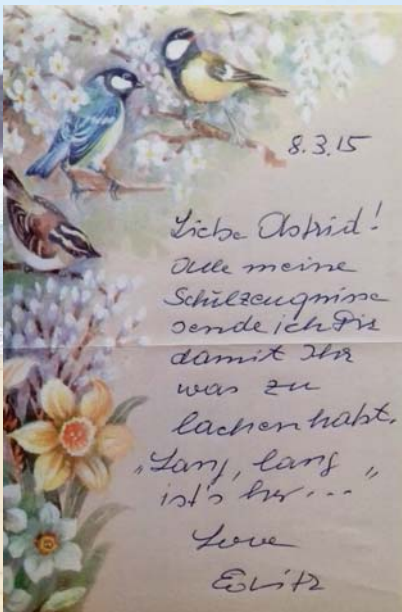 8.3.15
Liebe Astrid!
Alle meine
Schulzeugnisse
sende ich Dir
damit Ihr
was zu
lachen habt.
„Lang, lang
ist's her..."
Love